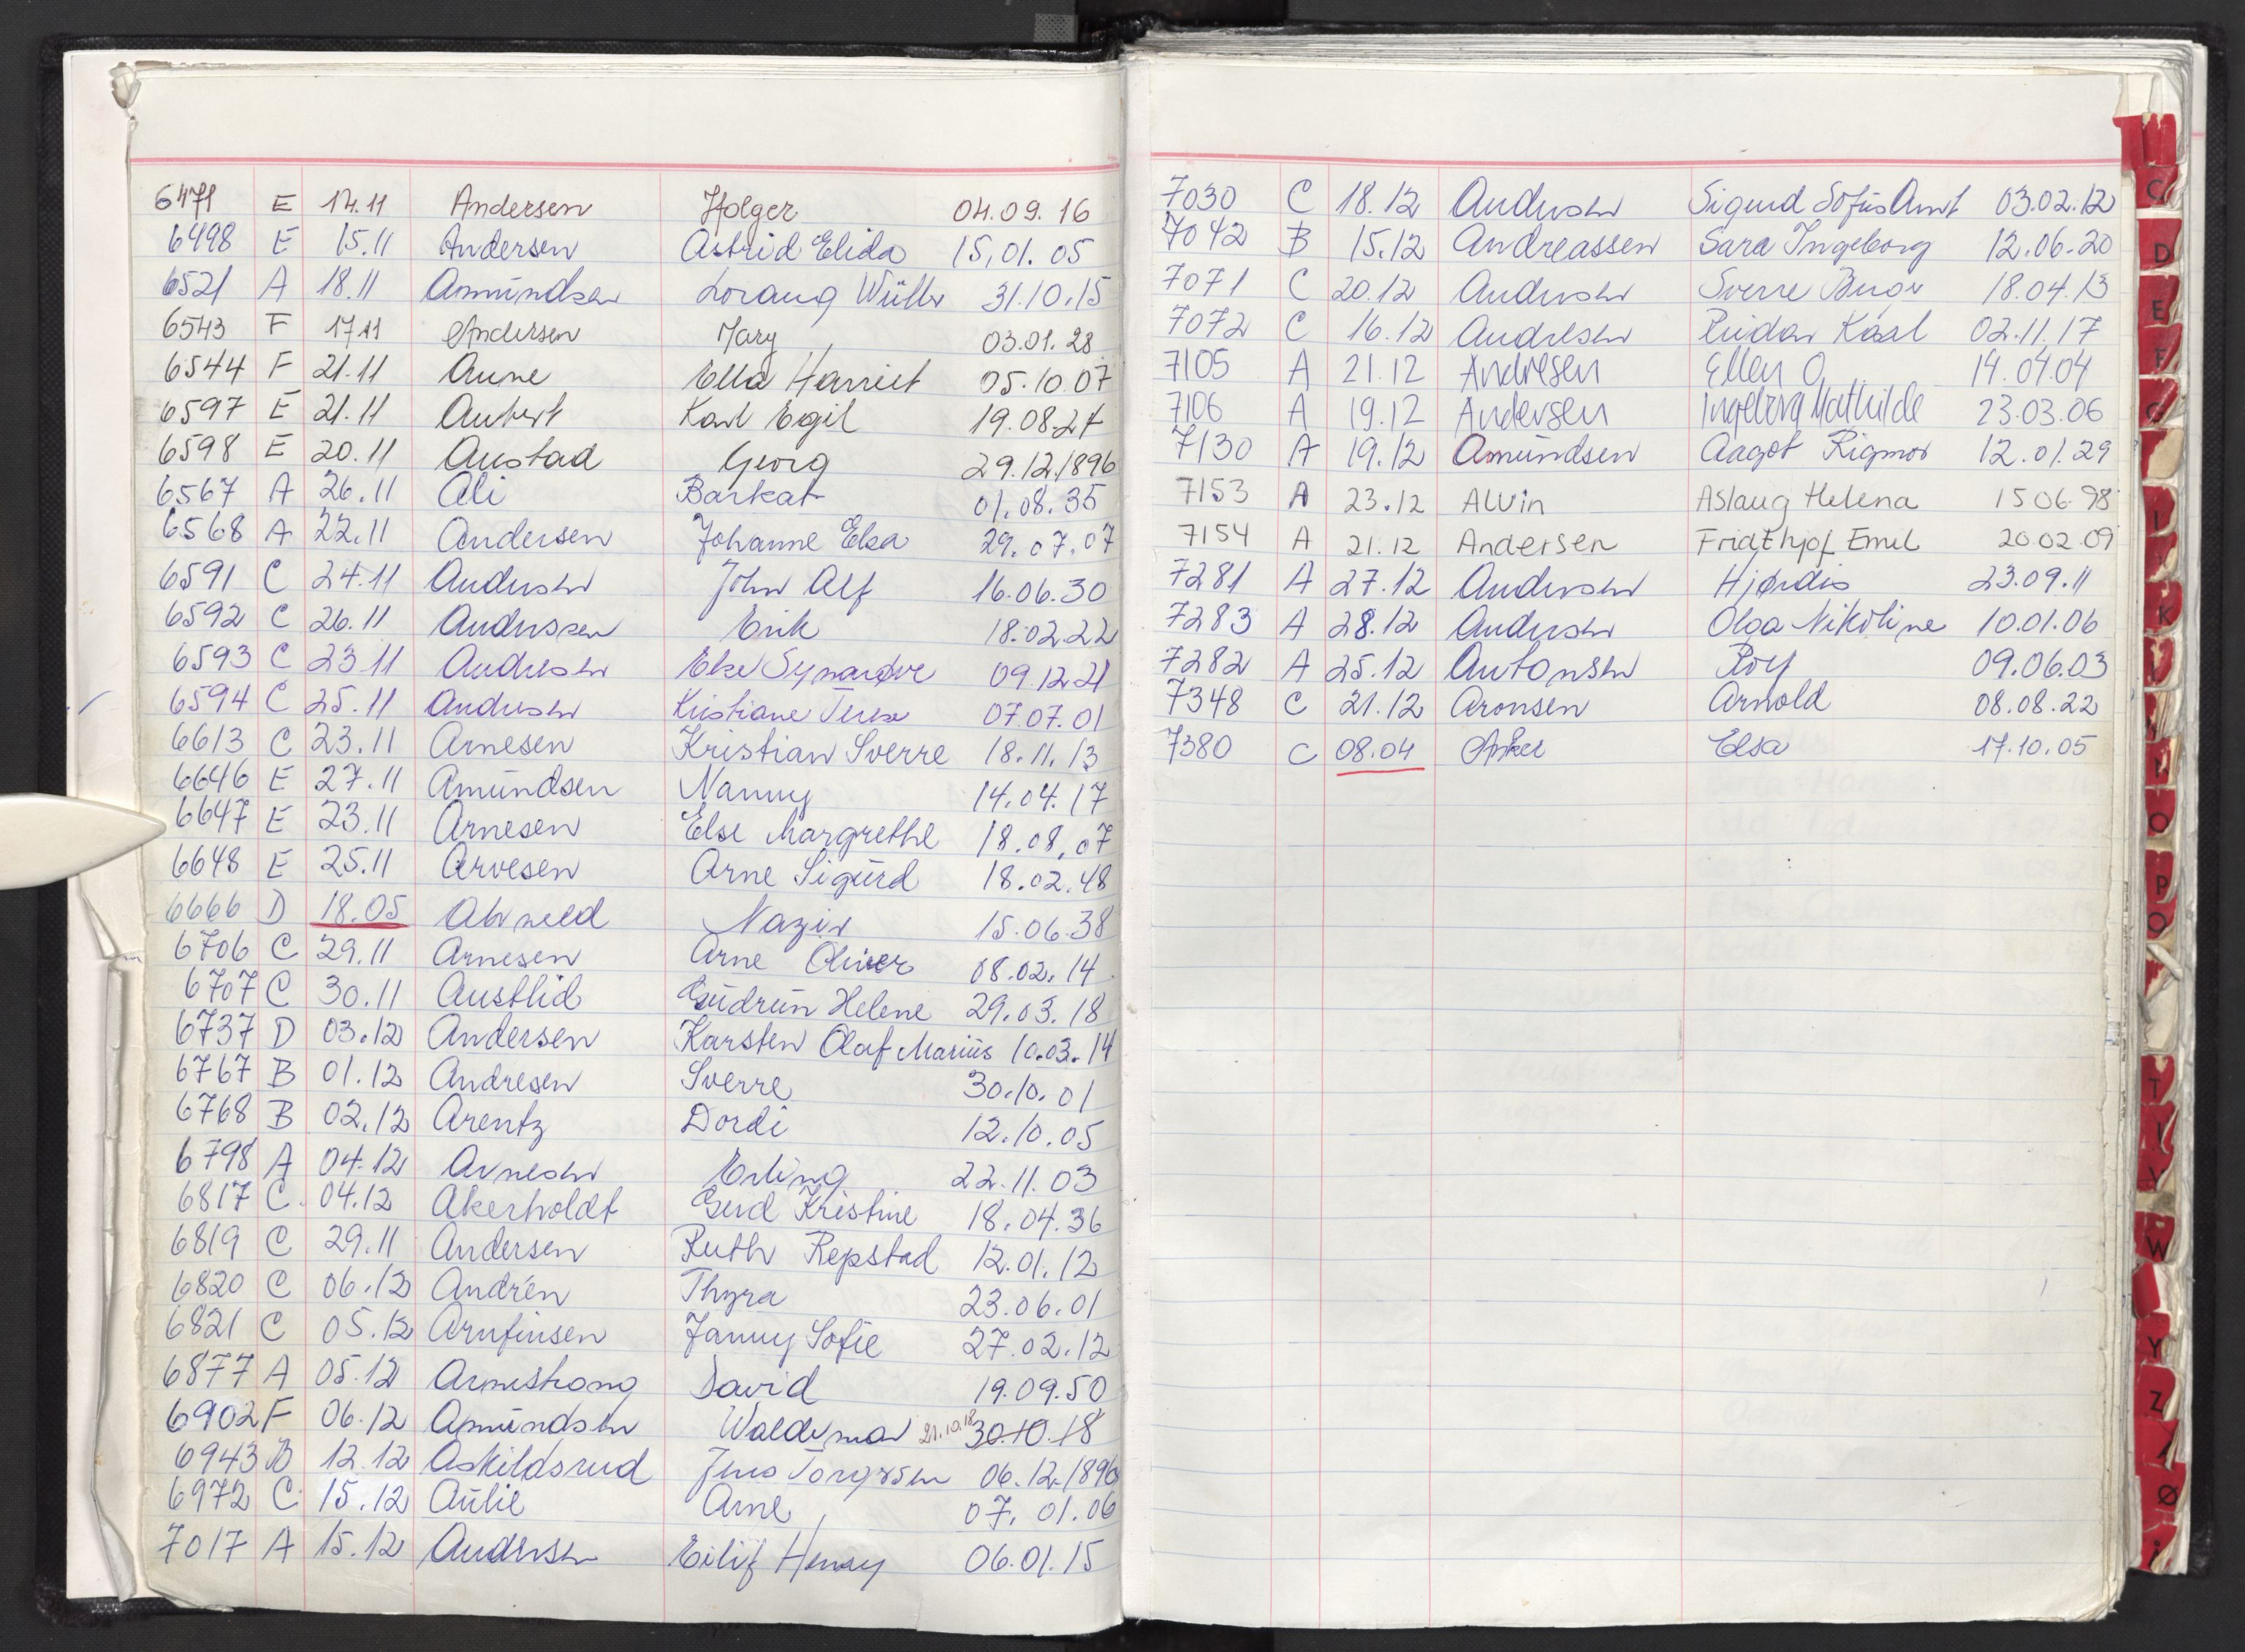 6471 E 14.11 Andersen Holger 04.09.16
6498 E 15.11 Andersen Astrid Elida 15.01.05
6521 A 18.11 Amundsen Loraug 31.10.15
6543 F 17.11 Andersen Mary 03.01.28
6544 F 21.11 Aune Ella Harriet 05.10.07
6597 E 21.11 Aubert Karl Egil 19.08.27
6598 E 20.11 Austad Georg 29.12.1896
6567 A 26.11 Ali Barkat 01.08.35
6568 A 22.11 Andersen Johanne Elsa 29.07.07
6591 C 24.11 Andersen John Alf 16.06.30
6592 C 26.11 Anderssen Erik 18.02.22
6593 C 23.11 Andresen Else 09.12.21
6594 C 25.11 Andersen Kristiane 07.07.01
6613 C 23.11 Arnesen Kristian Sverre 18.11.13
6646 E 27.11 Amundsen Nanny 14.04.17
6647 E 23.11 Arnesen Else Margrethe 18.08.07
6648 E 25.11 Arvesen Arne Sigurd 18.02.48
6666 D 18.05 Nazir 15.06.38
6706 C 29.11 Arnesen Arne Oliver 08.02.14
6707 C 30.11 Austlid Gudrun Helene 29.03.18
6737 D 03.12 Andersen Karsten Olaf Marius 10.03.14
6767 B 01.12 Andresen Sverre 30.10.01
6768 B 02.12 Arentz Dordi 12.10.05
6798 A 04.12 Arnesen Erling 22.11.03
6817 C 04.12 Akerholdt Gerd Kristine 18.04.36
6819 C 29.11 Andersen Ruth Repstad 12.01.12
6820 C 06.12 Andrén Thyra 23.06.01
6821 C 05.12 Arnfinsen Fanny Sofie 27.02.12
6877 A 05.12 Armstrong David 19.09.50
6902 F 06.12 Amundsen Waldemar 21.10.18 30.10.18
6943 B 12.12 Askildsrud Jens Torgersen 06.12.1896
6972 C 15.12 Aulie Arne 07.01.06
7017 A 15.12 Andersen Eilif Henry 06.01.15
7030 C 18.12 Andersen Sigurd Sofus Arnt 03.02.12
7042 B 15.12 Andreassen Sara Ingeborg 12.06.20
7071 C 20.12 Andersen Sverre 18.04.13
7072 C 16.12 Andresen Reidar Karl 02.11.17
7105 A 21.12 Andresen Ellen O. 14.04.04
7106 A 19.12 Andersen Ingeborg Mathilde 23.03.06
7130 A 19.12 Amundsen Aagot Rigmor 12.01.29
7153 A 23.12 Alvin Aslaug Helena 15.06.98
7154 A 21.12 Andersen Fridthjof Emil 20.02.09
7281 A 27.12 Andersen Hjørdis 23.09.11
7283 A 28.12 Andersen Olga Nikoline 10.01.06
7282 A 25.12 Antonsen Roy 09.06.03
7348 C 21.12 Aronsen Arnold 08.08.22
7380 C 08.04 Anker Elsa 17.10.05
C
D
E
F
G
I
K
N
O
P
Q
T
V
W
Y
Z
Ø